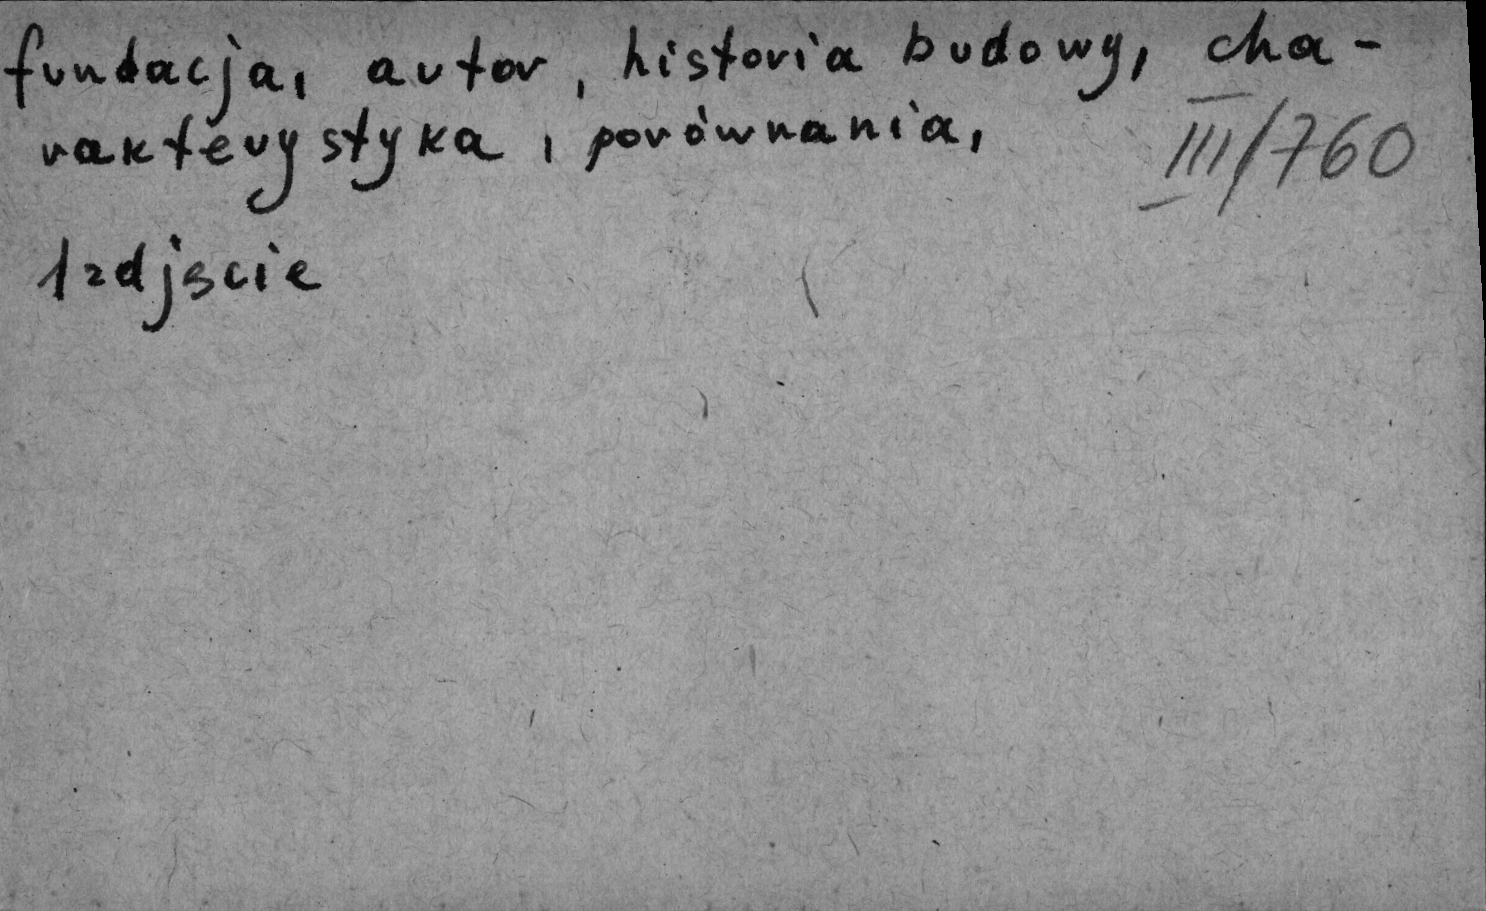 fundacja, autor, historia budowy, cha-
rakterystyka, porównania,
III/760
1 zdjęcie